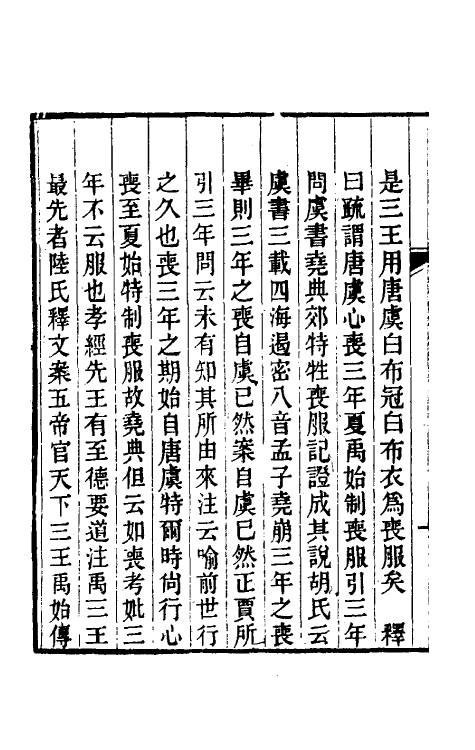 是三王用唐虞白布冠白布衣爲喪服矣　釋
曰疏謂唐虞心喪三年夏禹始制喪服引三年
問虞書堯典郊特牲喪服記證成其說胡氏云
虞書三載四海遏密八音孟子堯崩三年之喪
畢則三年之喪自虞已然案自虞已然正賈所
引三年問云未有知其所由來注云喻前世行
之久也喪三年之期始自唐虞特爾時尙行心
喪至夏始特制喪服故堯典但云如喪考妣三
年不云服也孝經先王有至德要道注禹三王
最先者陸氏釋文案五帝官天下三王禹始傳